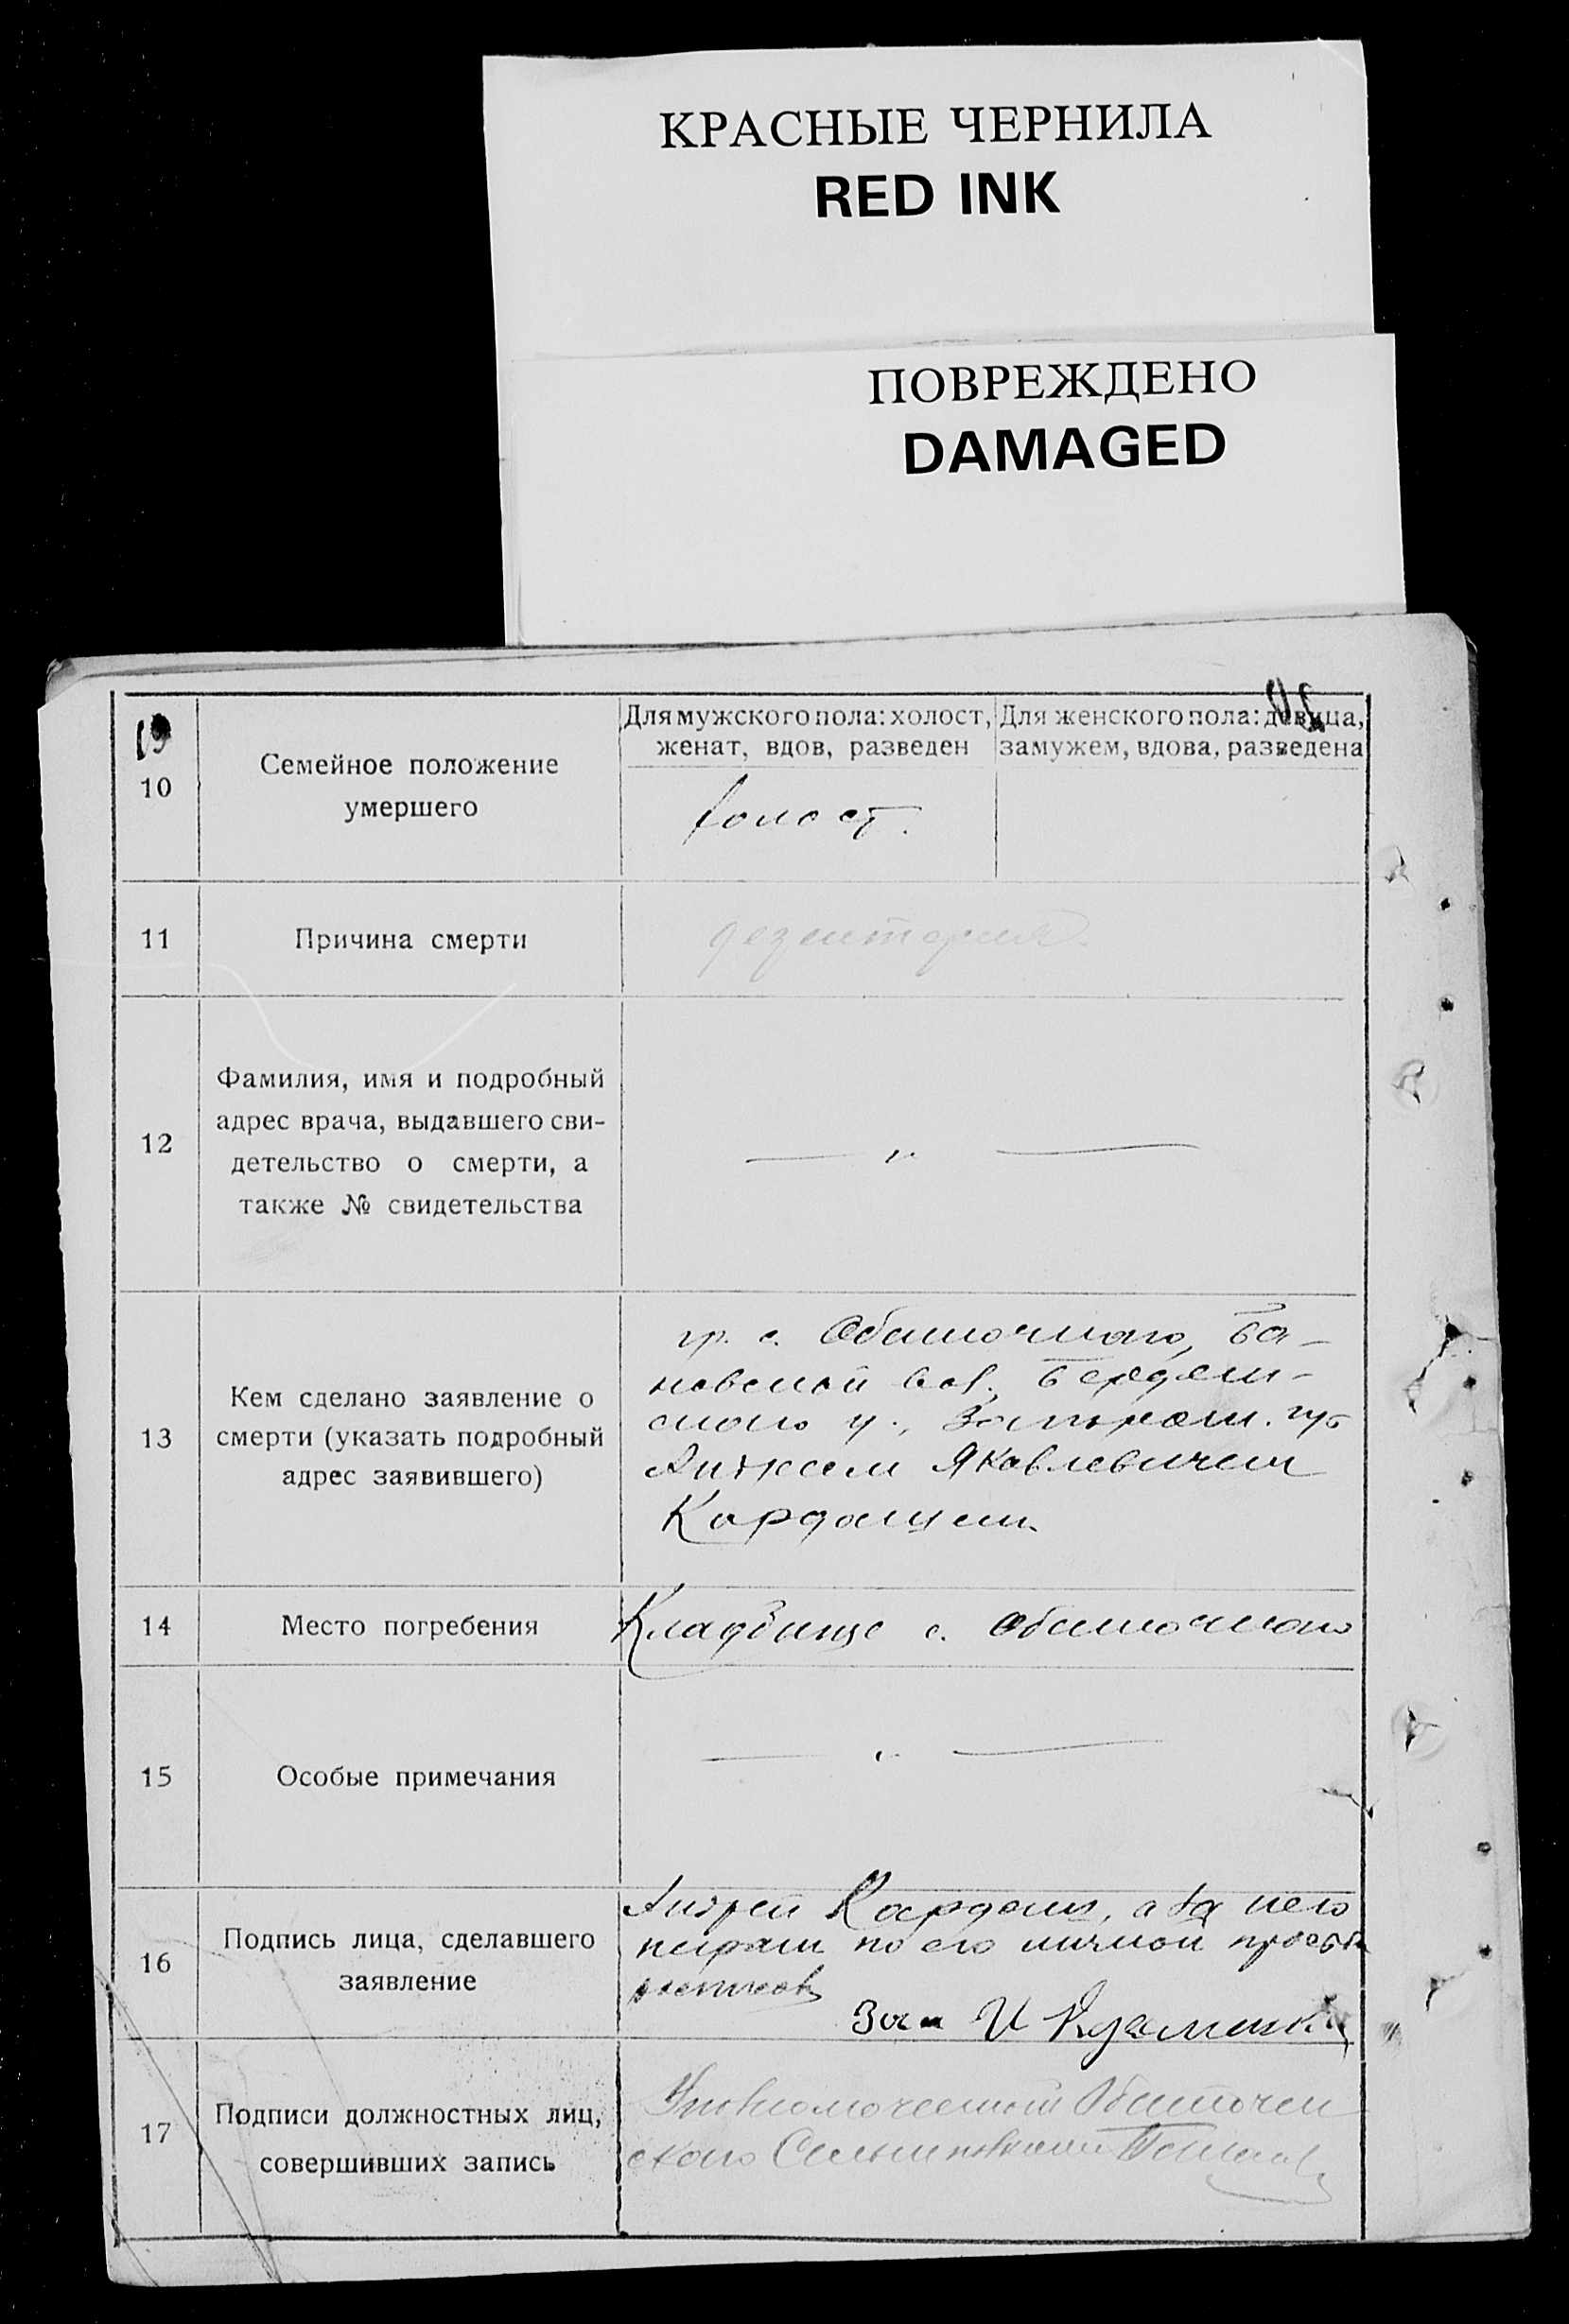 КРАСНЫЕ ЧЕРНИЛА
RED INK
ПОВРЕЖДЕНО
DAMAGED
10
Семейное положение
умершего
Для мужского пола: холост,
женат, вдов, разведен
Для женского пола: девица,
замужем, вдова, разведена
холост.
11
Причина смерти
дезентерия.
12
Фамилия, имя и подробный
адрес врача, выдавшего сви-
детельство о смерти, а
также № свидетельства
— " —
13
Кем сделано заявление о
смерти (указать подробный
адрес заявившего)
гр. с. Обиточного, Ба-
новской вол., Бердян-
ского у., Запорож. губ
Яковлевичем
14
Место погребения
Кладбище с. Обиточного
15
Особые примечания
— " —
16
Подпись лица, сделавшего
заявление
Андрей а за него
по его личной просьбе
Зав И
17
Подписи должностных лиц,
совершивших запись
Уполномоченный Обиточен
ского